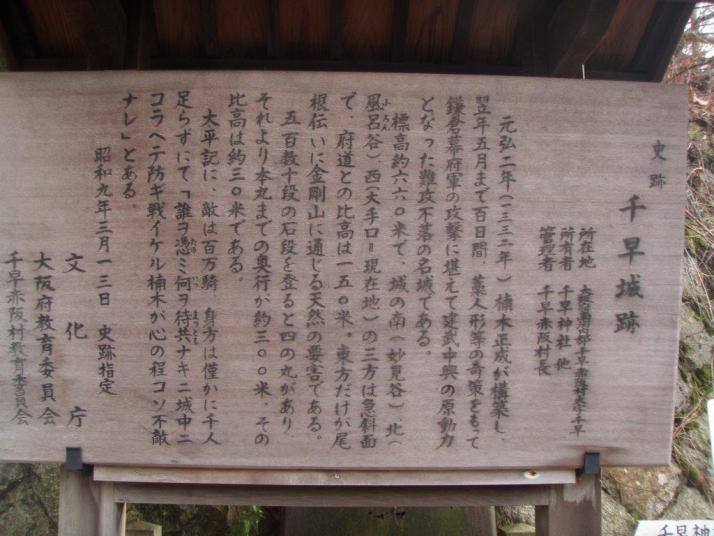 史跡 千早城跡
所在地 大阪府南河内郡千早赤阪村大字千早
所有者 千早神社 他
管理者 千早赤阪村長
元弘二年(一三三二年)楠木正成が構築し、
翌年五月まで百日間、藁人形等の奇策をもって
鎌倉幕府軍の攻撃に堪えて建武中興の原動力
となった難攻不落の名城である。
標高約六六〇米で、城の南(妙見谷)北(
風呂谷)、西(大手口=現在地)の三方は急斜面
ふろん
で、府道との比高は一五〇米。東方だけが尾
根伝いに金剛山に通じる天然の要害である。
五百数十段の石段を登ると四の丸があり
それより本丸までの奥行が約三〇〇米、その
比高は約三〇米である。
大平記に、敵は百万騎、身方は僅かに千人
足らずにて「誰ヲ憑ミ何ヲ待共ナキニ城中ニ
コラヘテ防ギ戦イケル楠木が心の程コソ不敵
ナレ」とある。
昭和九年三月一三日 史跡指定
文化庁
大阪府教育委員会
千早赤阪村教育委員会
千早神